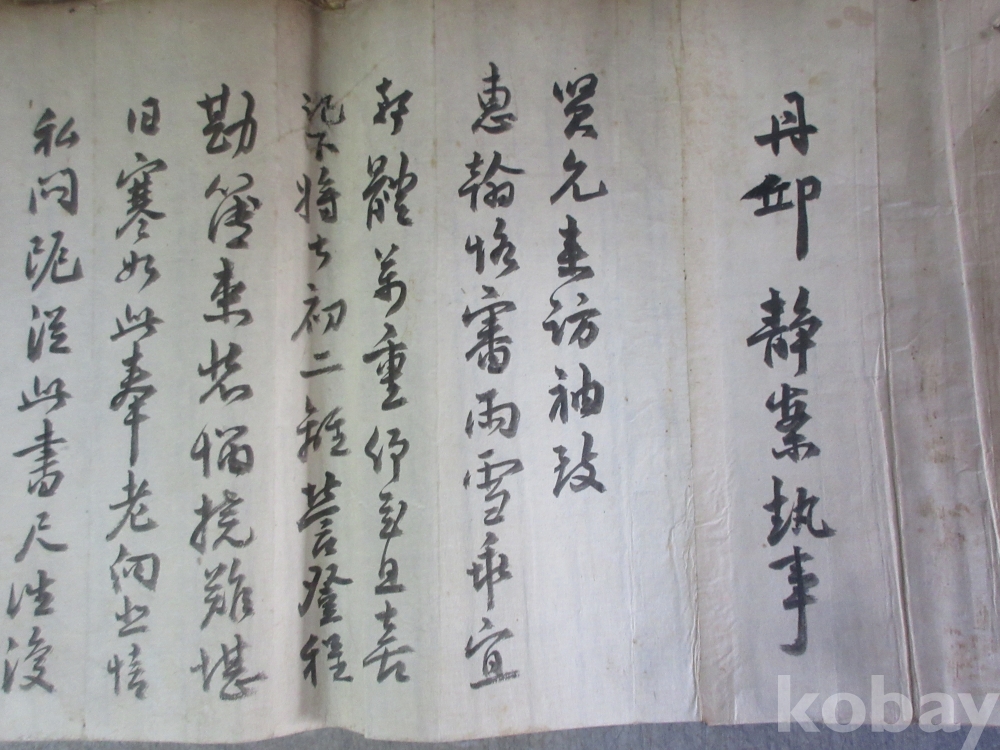 丹邱 靜案執事
賢允来訪袖致
惠翰恪審雨雪乖宜
體萬重仰慰且喜
記下將以初二離營登程
勘簿束裝惱撓難堪
日寒如此奉老向北情
私悶阨從此書尺往復
kobay